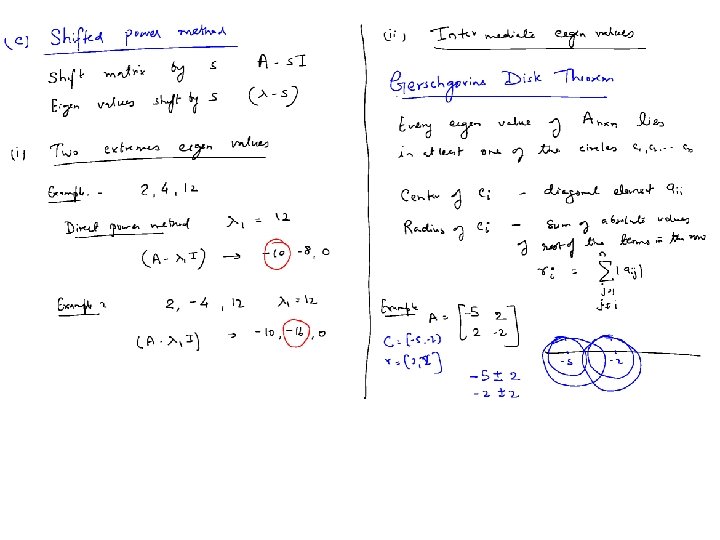 (c) Shifted power method
Shift matrix by s A - sI
Eigen values shift by s (λ-s)
(i) Two extremes eigen values
Example - 2, 4, 12
Direct power method λ₁ = 12
(A - λ₁I) → -10 -8, 0
Example 2 2, -4, 12 λ₁=12
(A - λ₁I) → -10, -16, 0
(ii) Intermediate eigen values
Gerschgorins Disk Theorem
Every eigen value of Anxn lies
in at least one of the circles c₁, c₂ ... cn
Center of Ci - diagonal element aii
Radius of Ci - sum of absolute values
of rest of the terms in the row
ri = n Σ j=1 j≠i |aij|
Example A = [-5 2
2 -2]
C = [-5, -2)
r = [2, 2]
-5 ± 2
-2 ± 2
-5 -2